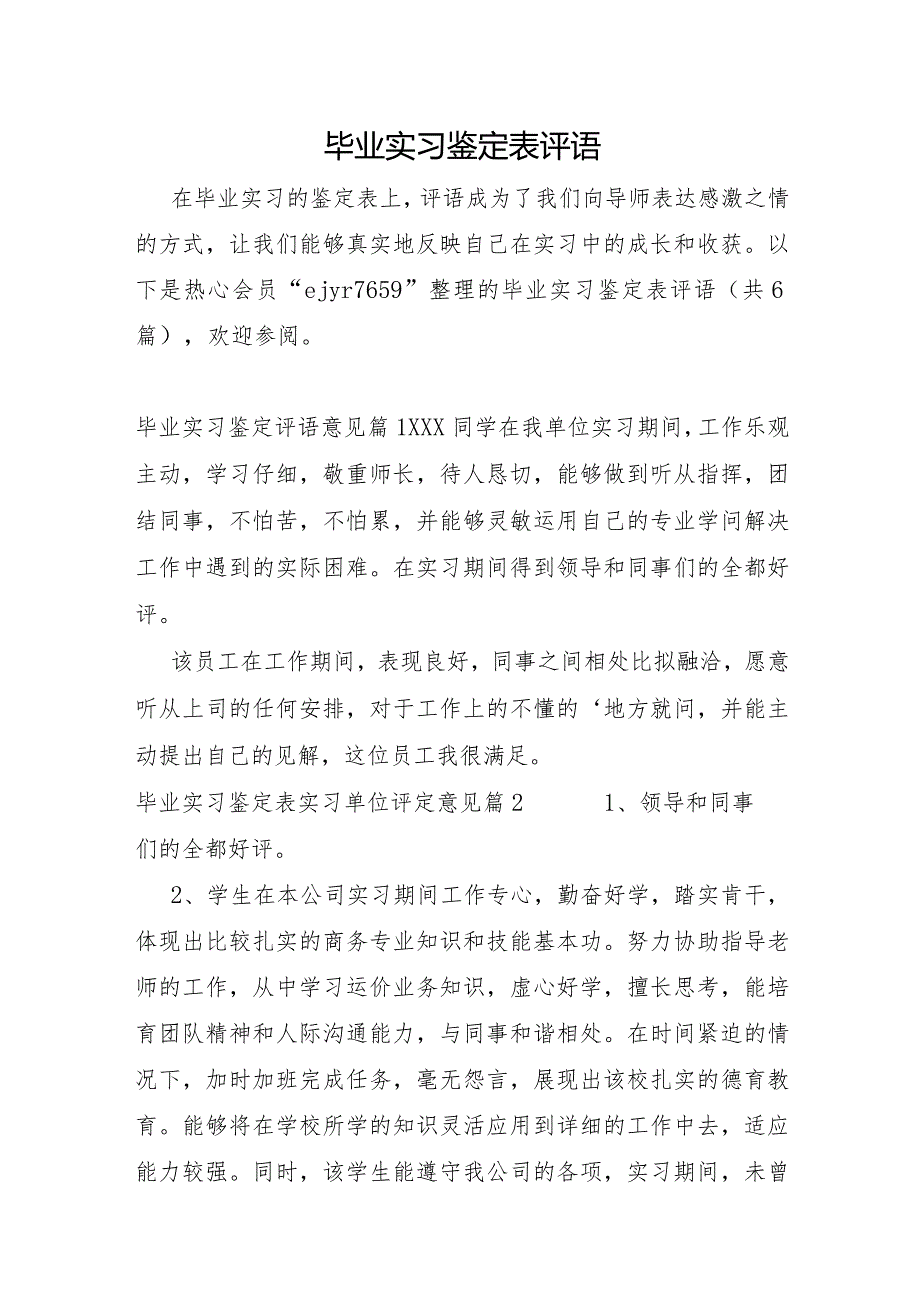 毕业实习鉴定表评语
在毕业实习的鉴定表上，评语成为了我们向导师表达感激之情
的方式，让我们能够真实地反映自己在实习中的成长和收获。以
下是热心会员“ejyr7659”整理的毕业实习鉴定表评语（共6
篇），欢迎参阅。
毕业实习鉴定评语意见篇1XXX同学在我单位实习期间，工作乐观
主动，学习仔细，敬重师长，待人恳切，能够做到听从指挥，团
结同事，不怕苦，不怕累，并能够灵敏运用自己的专业学问解决
工作中遇到的实际困难。在实习期间得到领导和同事们的全都好
评。
该员工在工作期间，表现良好，同事之间相处比拟融洽，愿意
听从上司的任何安排，对于工作上的不懂的‘地方就问，并能主
动提出自己的见解，这位员工我很满足。
毕业实习鉴定表实习单位评定意见篇2 1、领导和同事
们的全都好评。
2、学生在本公司实习期间工作专心，勤奋好学，踏实肯干，
体现出比较扎实的商务专业知识和技能基本功。努力协助指导老
师的工作，从中学习运价业务知识，虚心好学，擅长思考，能培
育团队精神和人际沟通能力，与同事和谐相处。在时间紧迫的情
况下，加时加班完成任务，毫无怨言，展现出该校扎实的德育教
育。能够将在学校所学的知识灵活应用到详细的工作中去，适应
能力较强。同时，该学生能遵守我公司的各项，实习期间，未曾